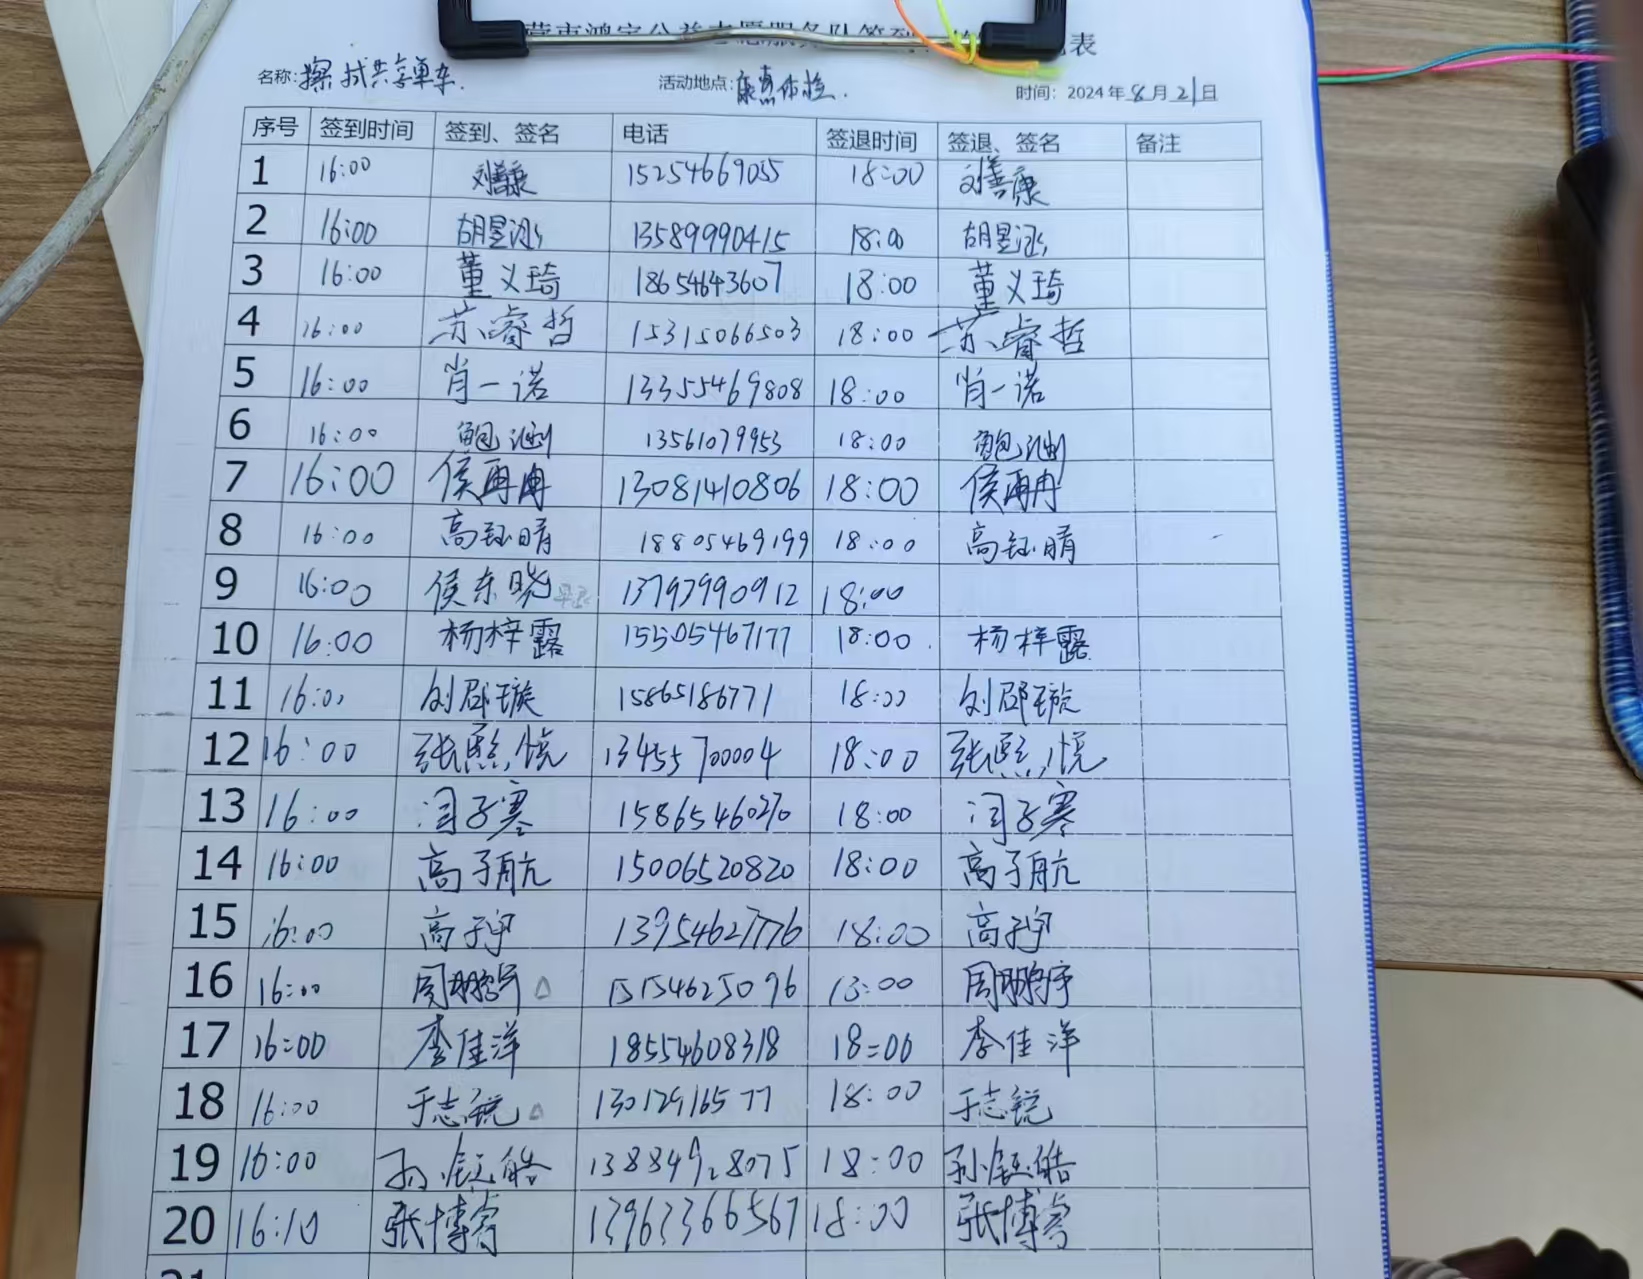 鸿宇公益志愿服务队签到 表
名称: 擦拭共享单车. 活动地点: 康惠体检. 时间: 2024年8月21日
序号 签到时间 签到、签名 电话 签退时间 签退、签名 备注
1 16:00 刘善康 15254669055 18:00 刘善康
2 16:00 胡昱泓 13589990415 18:00 胡昱泓
3 16:00 董义琦 18654643607 18:00 董义琦
4 16:00 苏睿哲 15315066503 18:00 苏睿哲
5 16:00 肖一诺 13355469808 18:00 肖一诺
6 16:00 鲍 13561079953 18:00 鲍
7 16:00 侯再冉 13081410806 18:00 侯再冉
8 16:00 高钰晴 18805469199 18:00 高钰晴
9 16:00 侯东晓 13793990912 18:00
10 16:00 杨梓露 15505467177 18:00. 杨梓露
11 16:00 刘郡璇 15865186771 18:00 刘郡璇
12 16:00 张熙悦 13455700004 18:00 张熙悦
13 16:00 闫子寒 15865460270 18:00 闫子寒
14 16:00 高子航 15006520820 18:00 高子航
15 16:00 高子宇 13954627776 18:00 高子宇
16 16:00 周鹏宇 15154625096 18:00 周鹏宇
17 16:00 李佳洋 18554608318 18:00 李佳洋
18 16:00 于志锐 13012916577 18:00 于志锐
19 16:00 孙钰皓 13884928075 18:00 孙钰皓
20 16:10 张博睿 13963366567 18:00 张博睿
21